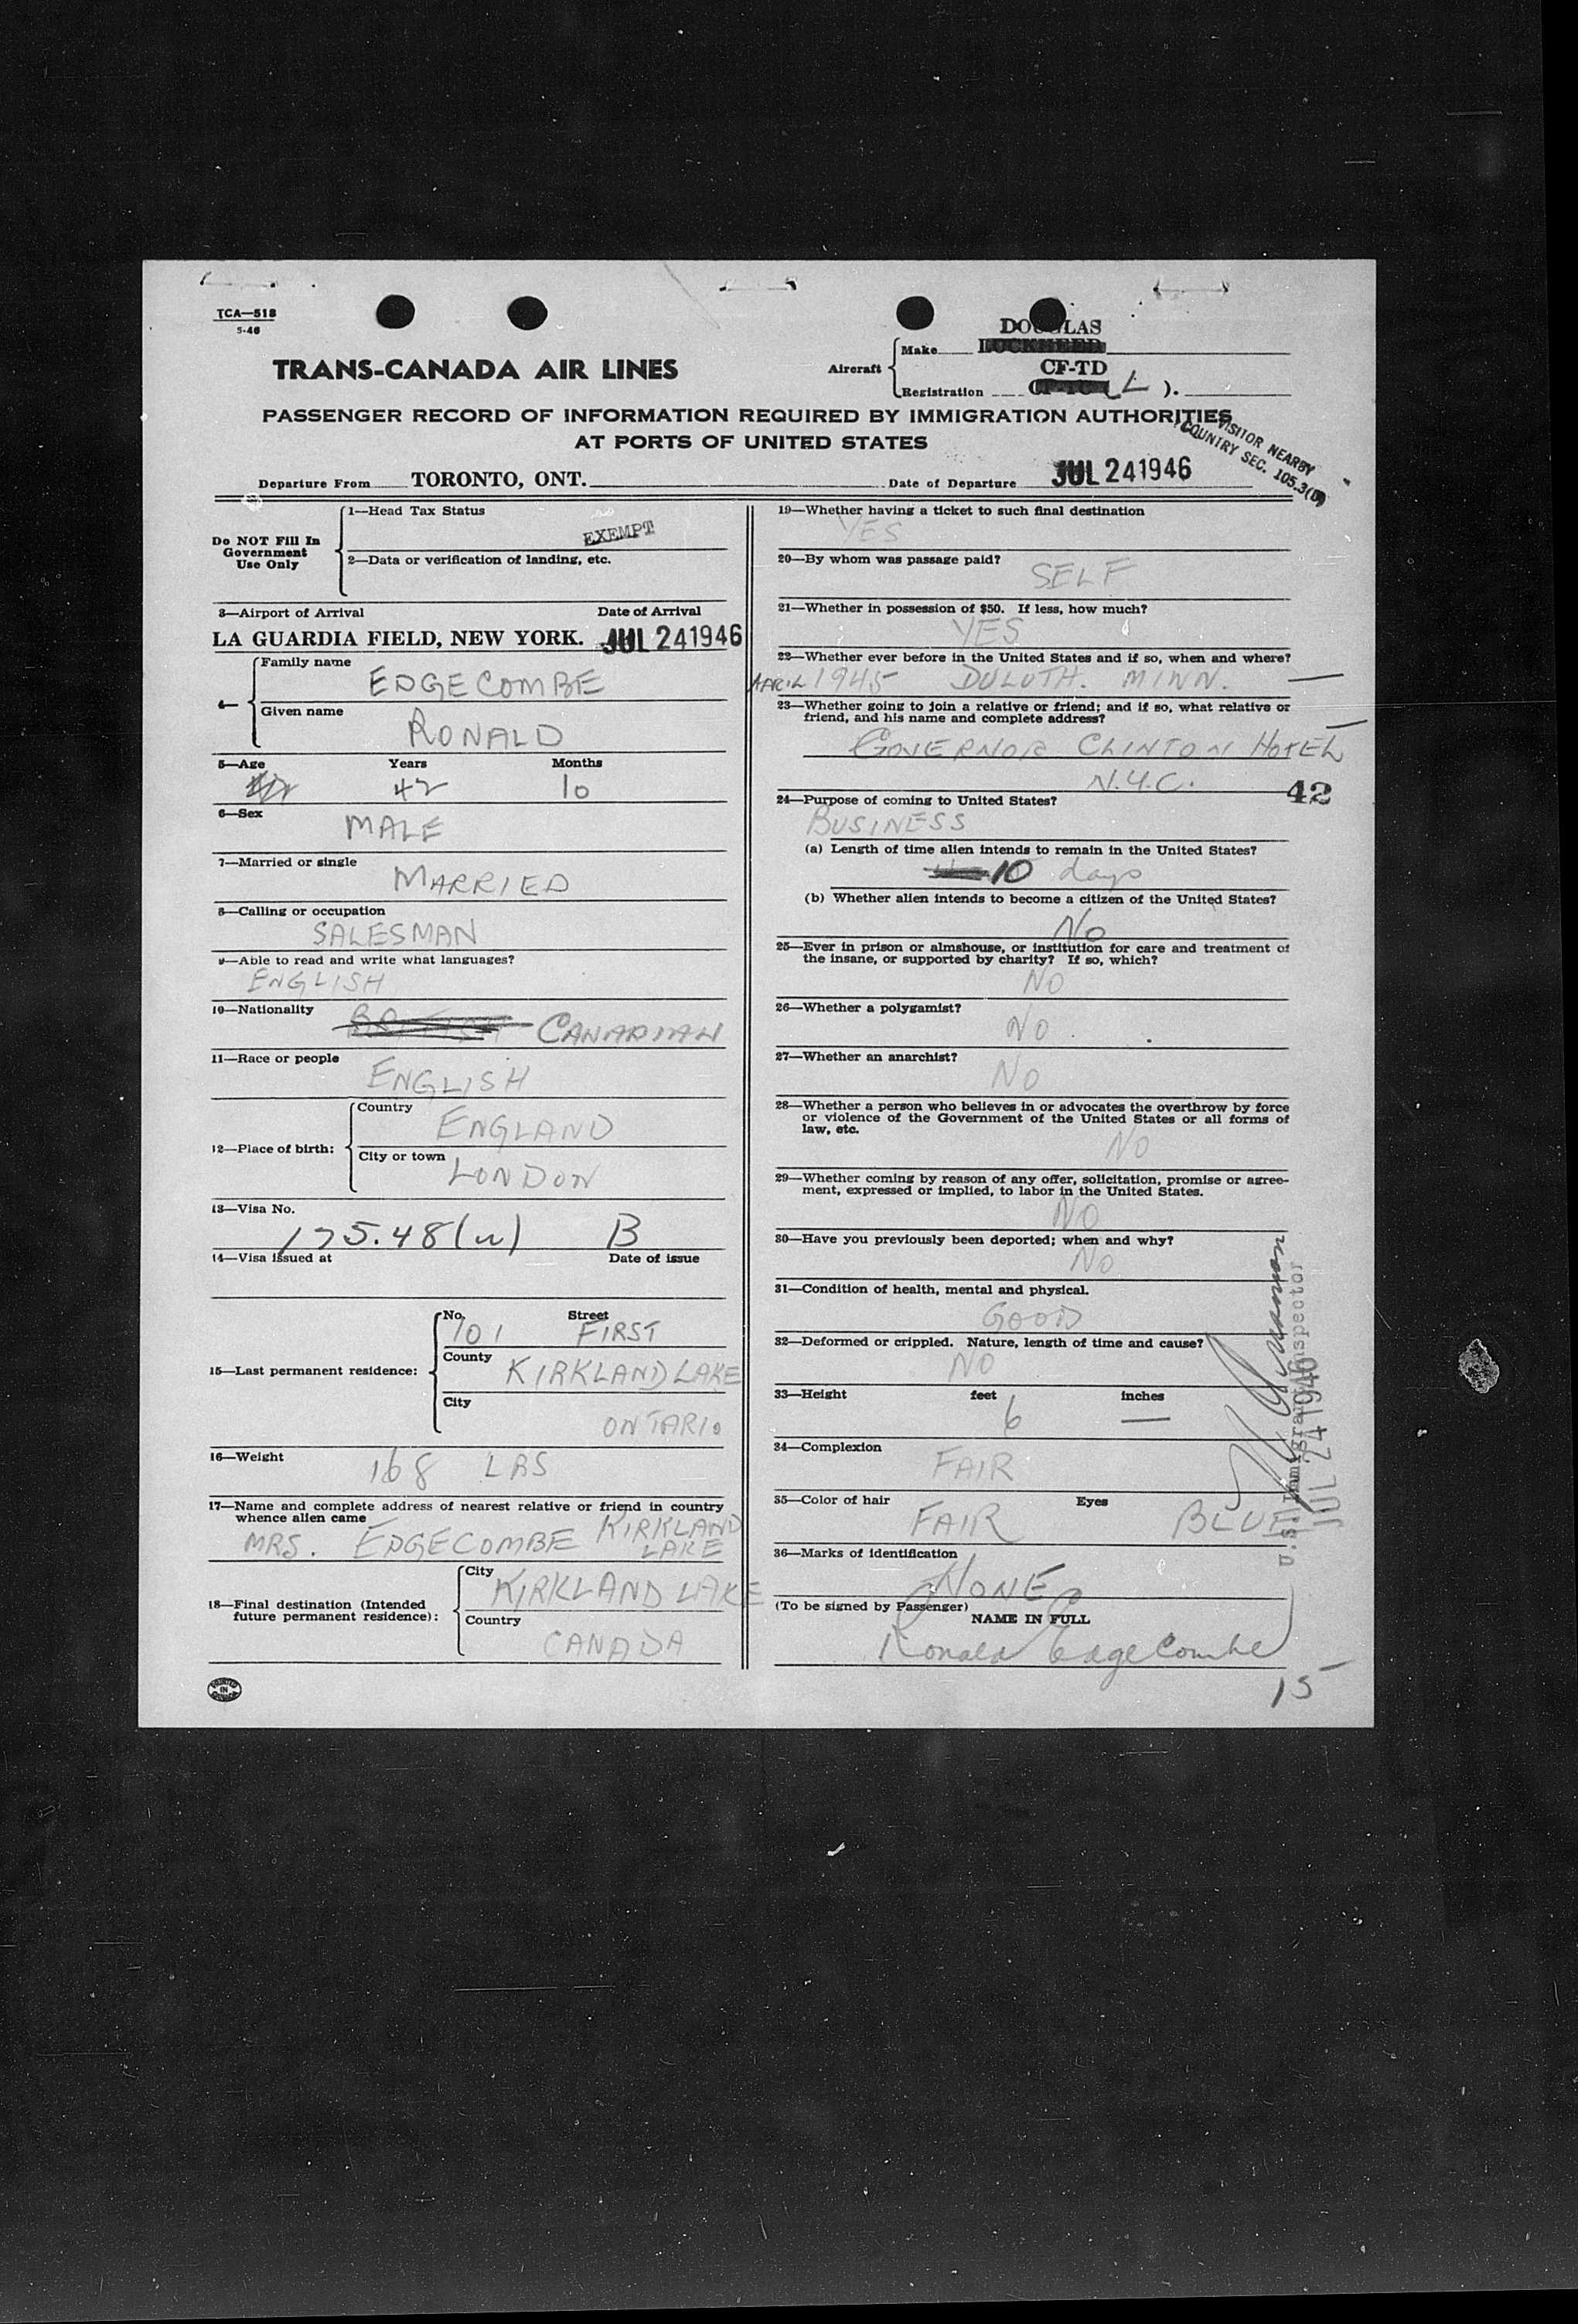 TCA—518
5-46
DOUGLAS
Aircraft Make
CF-TD
Registration (L).
TRANS-CANADA AIR LINES
PASSENGER RECORD OF INFORMATION REQUIRED BY IMMIGRATION AUTHORITIES
AT PORTS OF UNITED STATES
VISITOR NEARBY
COUNTRY SEC. 105.3(b)
Departure From TORONTO, ONT. Date of Departure JUL 24 1946
Do NOT Fill In
Government
Use Only
1—Head Tax Status
EXEMPT
2—Data or verification of landing, etc.
3—Airport of Arrival Date of Arrival
LA GUARDIA FIELD, NEW YORK. JUL 24 1946
4—
Family name
EDGECOMBE
Given name
RONALD
5—Age Years Months
42 10
6—Sex
MALE
7—Married or single
MARRIED
8—Calling or occupation
SALESMAN
9—Able to read and write what languages?
ENGLISH
10—Nationality
BRITISH CANADIAN
11—Race or people
ENGLISH
12—Place of birth:
Country
ENGLAND
City or town
LONDON
13—Visa No.
175.48(w) B
14—Visa issued at Date of issue
15—Last permanent residence:
No. Street
101 FIRST
County
KIRKLAND LAKE
City
ONTARIO
16—Weight
168 LBS
17—Name and complete address of nearest relative or friend in country
whence alien came
MRS. EDGECOMBE KIRKLAND
LAKE
18—Final destination (Intended
future permanent residence):
City
KIRKLAND LAKE
Country
CANADA
PRINTED
IN
CANADA
19—Whether having a ticket to such final destination
YES
20—By whom was passage paid?
SELF
21—Whether in possession of $50. If less, how much?
YES
22—Whether ever before in the United States and if so, when and where?
APRIL 1945 DULUTH. MINN. —
23—Whether going to join a relative or friend; and if so, what relative or
friend, and his name and complete address?
GOVERNOR CLINTON HOTEL
N.Y.C.
42
24—Purpose of coming to United States?
BUSINESS
(a) Length of time alien intends to remain in the United States?
10 days
(b) Whether alien intends to become a citizen of the United States?
No
25—Ever in prison or almshouse, or institution for care and treatment of
the insane, or supported by charity? If so, which?
NO
26—Whether a polygamist?
NO
27—Whether an anarchist?
NO
28—Whether a person who believes in or advocates the overthrow by force
or violence of the Government of the United States or all forms of
law, etc.
NO
29—Whether coming by reason of any offer, solicitation, promise or agree-
ment, expressed or implied, to labor in the United States.
NO
30—Have you previously been deported; when and why?
NO
31—Condition of health, mental and physical.
GOOD
32—Deformed or crippled. Nature, length of time and cause?
NO
33—Height feet inches
6 —
34—Complexion
FAIR
35—Color of hair Eyes
FAIR BLUE
36—Marks of identification
NONE
(To be signed by Passenger)
NAME IN FULL
Ronald Edgecombe
15
U.S. Immigrant Inspector
JUL 24 1946